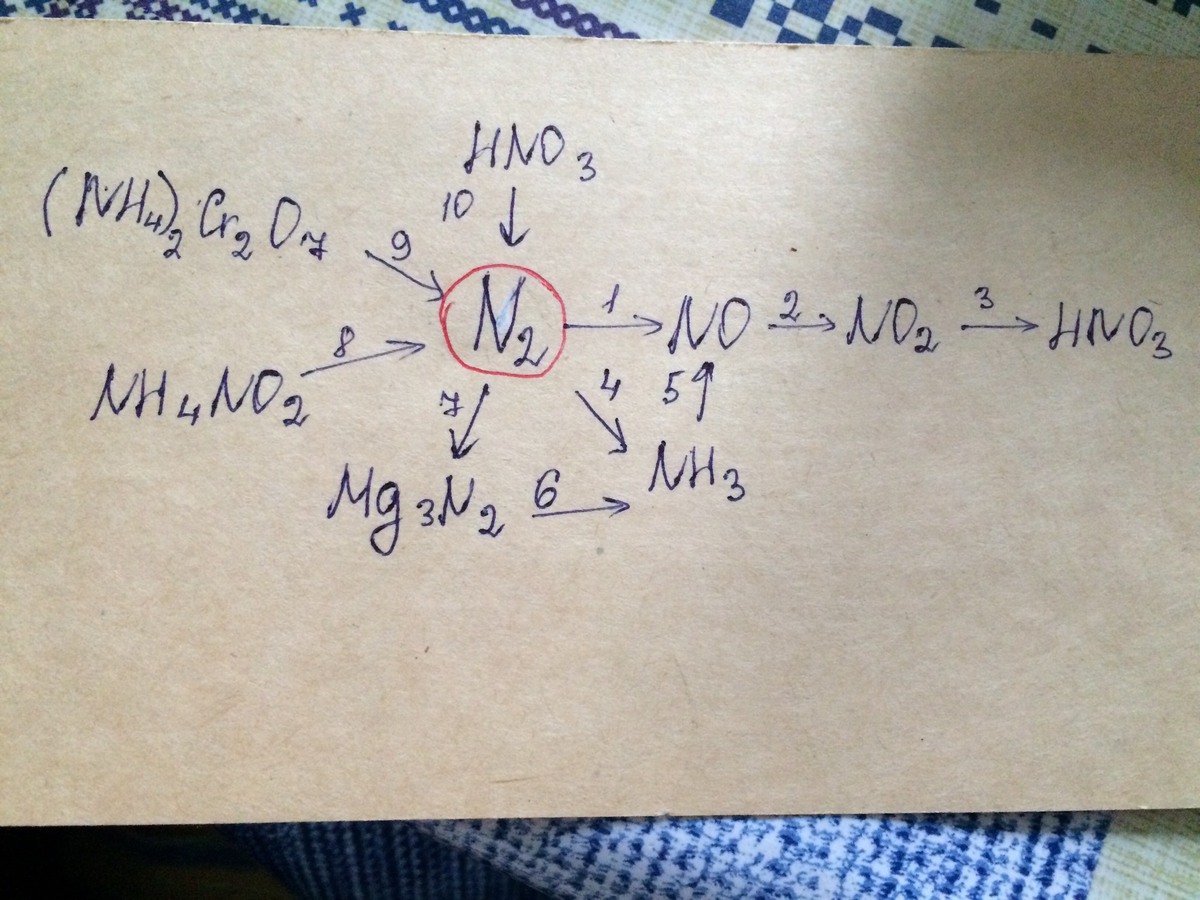 HNO3
10 ↓
(NH4)2Cr2O7 9→
N2 1→ NO 2→ NO2 3→ HNO3
8→
NH4NO2
7↓ 4↘ 5↑
Mg3N2 6→ NH3